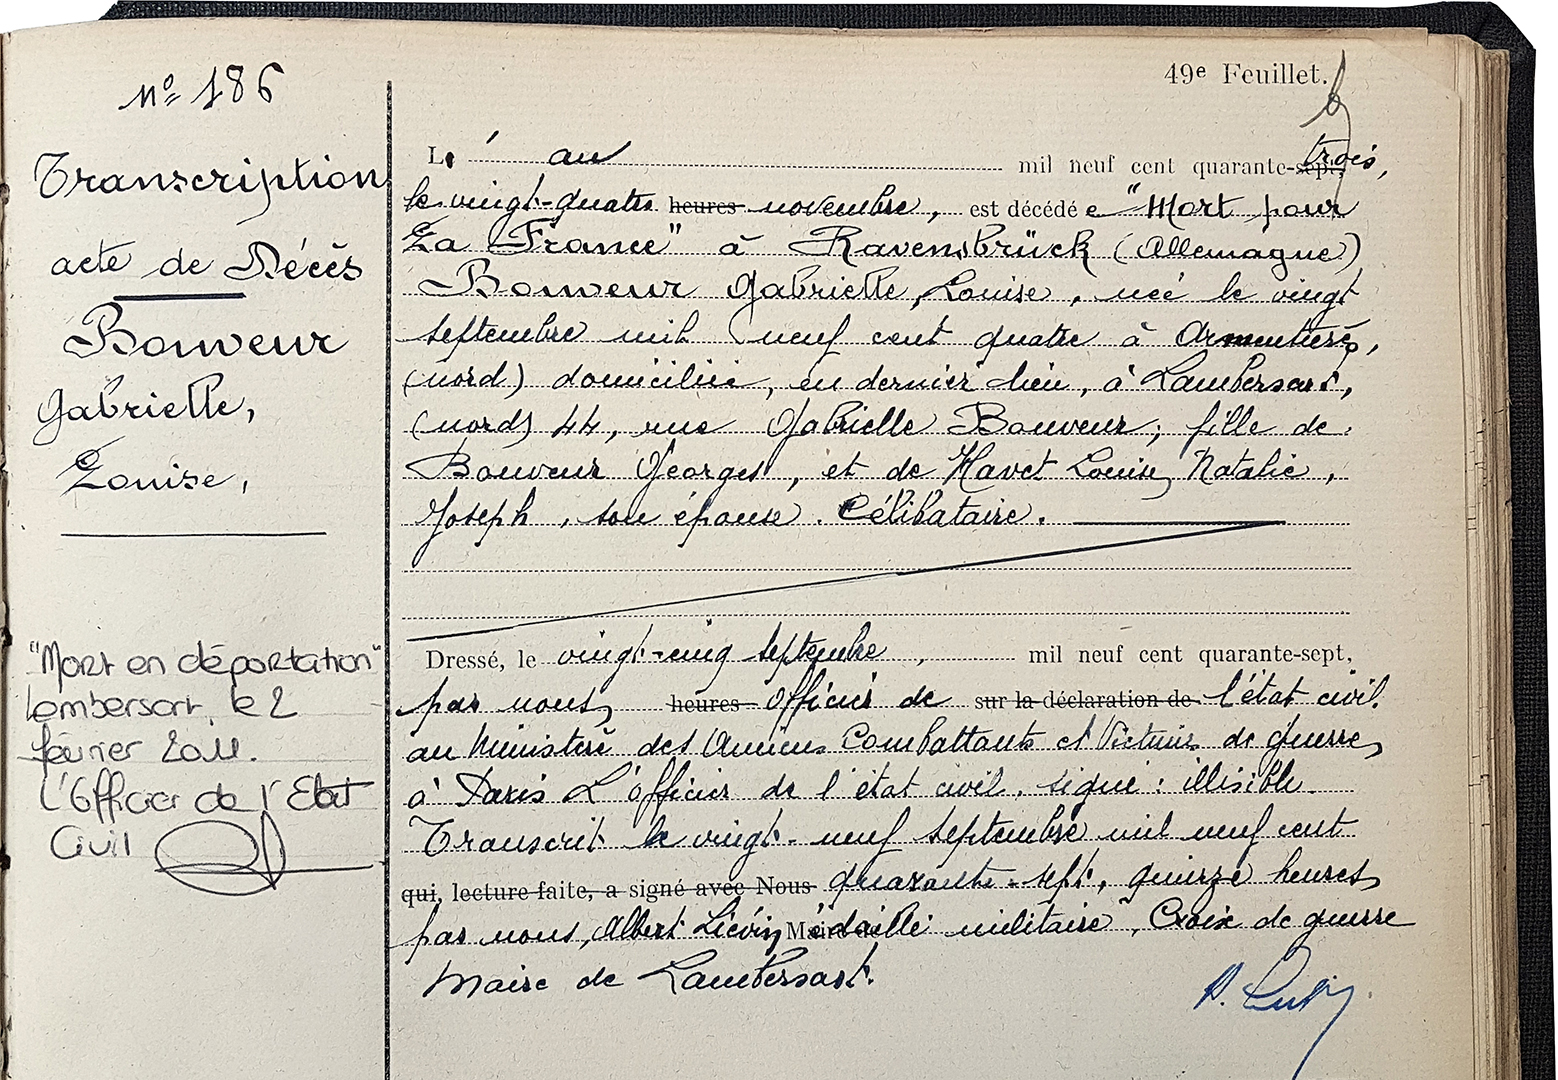 49e Feuillet.
Nº 186
Transcription
acte de Décès
Bouveur
Gabrielle,
Louise,
"Mort en déportation"
Lambersart, le 2
février 2011.
L'Officier de l'Etat
Civil
L' an mil neuf cent quarante-sept trois,
le vingt-quatre heures novembre, est décédée "Mort pour
La France" à Ravensbrück (Allemagne)
Bouveur Gabrielle, Louise, née le vingt
septembre mil neuf cent quatre à Armentières,
(nord) domiciliée, en dernier lieu, à Lambersart,
(nord) 44, rue Gabrielle Bouveur; fille de
Bouveur Georges, et de Havet Louise, Natalie,
Joseph, son épouse. Célibataire.
Dressé, le vingt-cinq septembre, mil neuf cent quarante-sept,
par nous, heures Officier de sur la déclaration de l'état civil
au Ministère des Anciens Combattants et Victimes de guerre,
à Paris L'officier de l'état civil. signé: illisible.
Transcrit le vingt-neuf septembre mil neuf cent
qui, lecture faite, a signé avec Nous quarante-sept, quinze heures,
par nous, Albert Liévin, Médaillé militaire, Croix de guerre
Maire de Lambersart.